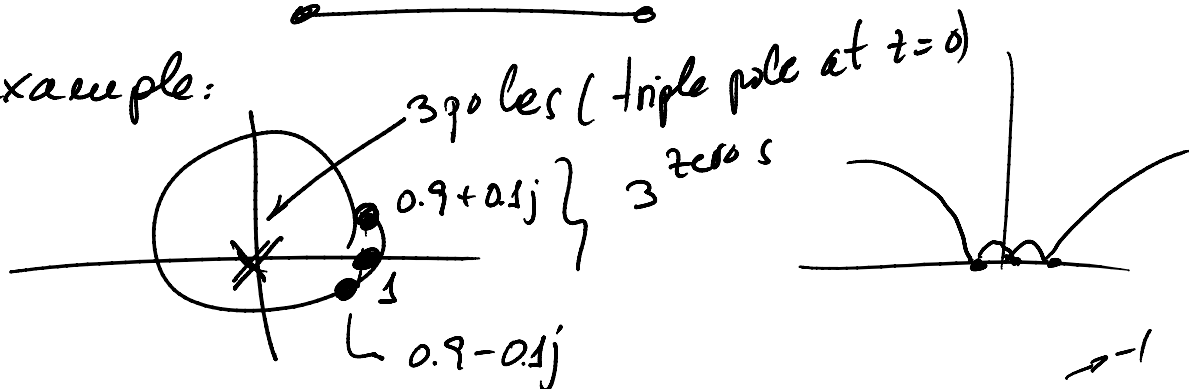 xample:
3 poles (triple pole at z=0)
0.9+0.1j } 3 zeros
1
0.9-0.1j
-1